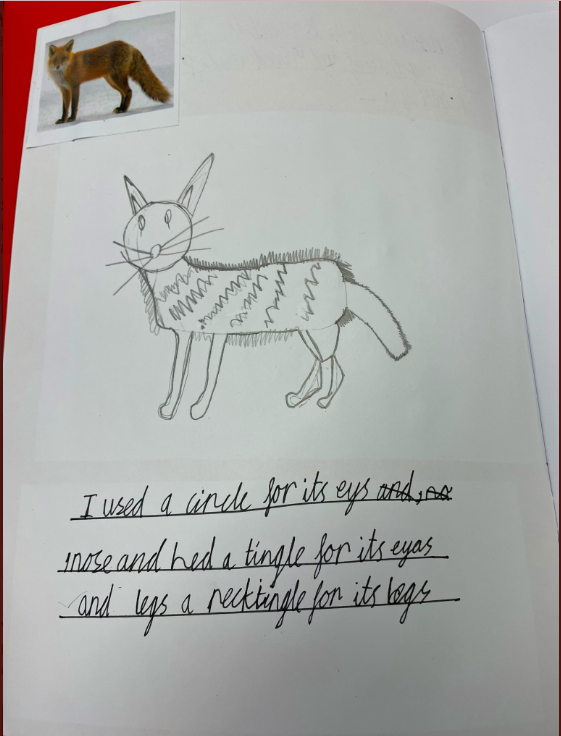 I used a circle for its eys and, no
nose and hed a tingle for its eyas
and legs a recktingle for its legs